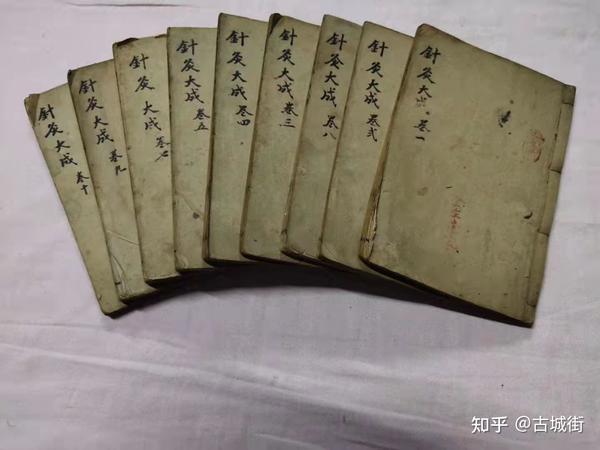 針灸大成 卷十
針灸大成 卷九
針灸大成 卷七
針灸大成 卷五
針灸大成 卷四
針灸大成 卷三
針灸大成 卷八
針灸大成 卷弍
針灸大成 卷一
知乎 @古城街